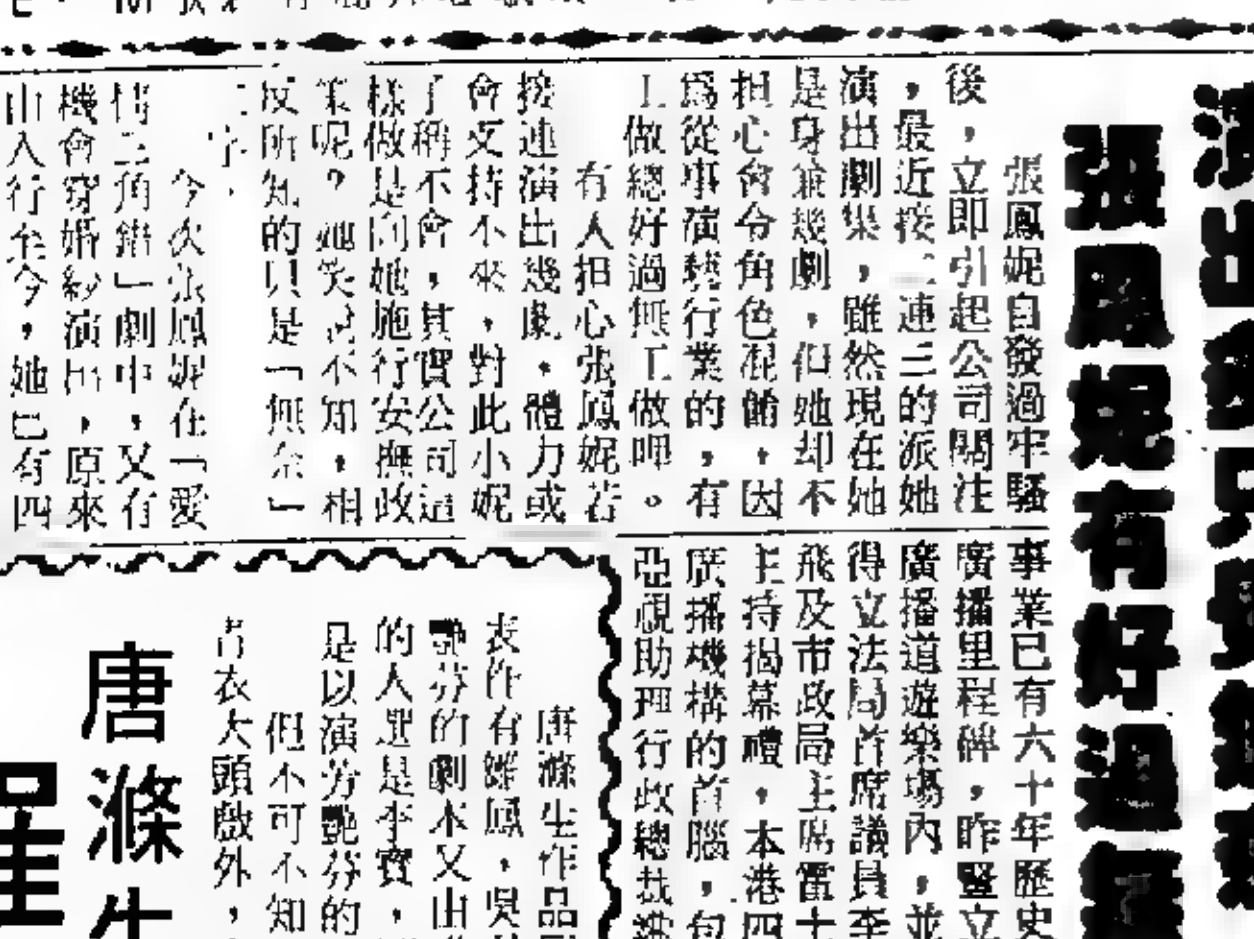 張鳳妮有好過無
張鳳妮自發過牢騷
後，立即引起公司關注
，最近接二連三的派她
演出劇集，雖然現在她
是身兼幾劇，但她却不
担心會令角色混餚，因
爲從事演藝行業的，有
工做總好過無工做呷。
有人担心張鳳妮若
接連演出幾劇，體力或
會支持不來，對此小妮
子稱不會，其實公司這
樣做是向她施行安撫政
策呢？她笑說不知，相
反所知的只是「無奈」
二字。
今次張鳳妮在「愛
情三角錯」劇中，又有
機會穿婚紗演出，原來
由入行至今，她已有四
事業已有六十年歷史
廣播里程碑，昨豎立
廣播道遊樂場內，並
得立法局首席議員李
飛及市政局主席霍士
主持揭幕禮，本港四
廣播機構的首腦，包
亞視助理行政總裁
唐滌生作品
表作有雛鳳，吳
艷芬的劇本又由
的人選是李寶，
是以演芳艷芬的
但不可不知
青衣大頭戲外，
唐滌生